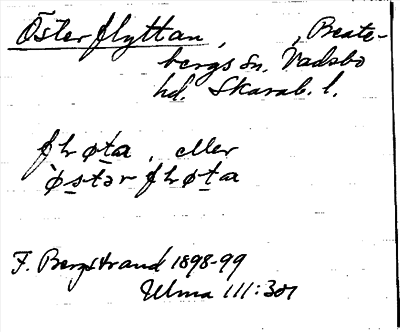 Österflyttan, , Beate-
bergs sn. Vadsbo
hd. Skarab. l.
eller
F. Bergstrand 1898-99
Ulma 111:301